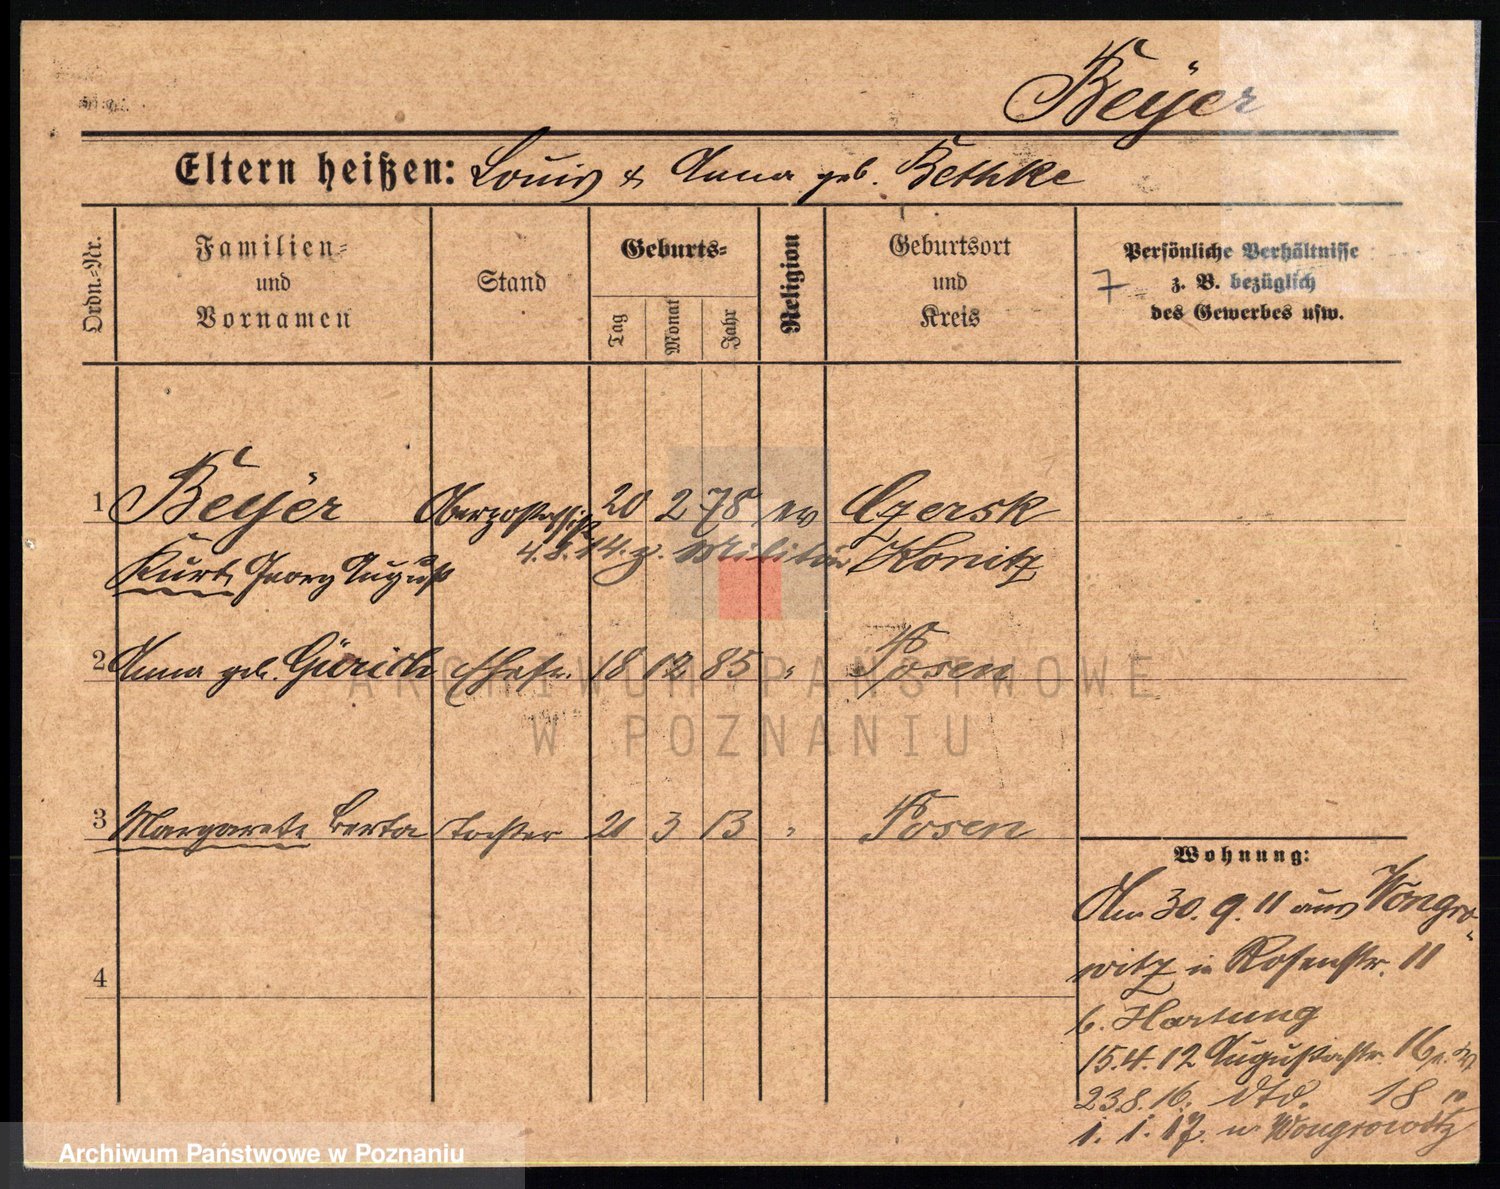 Beÿer
Eltern heißen: Louis & Anna geb. Bethke
Ordn.=Nr.
Familien=
und
Vornamen
Stand
Geburts=
Tag
Monat
Jahr
Religion
Geburtsort
und
Kreis
7
Persönliche Verhältnisse
z. B. bezüglich
des Gewerbes usw.
1 Beÿer Oberpostassist. 20 2 78 ev Czersk
4.8.14. z. Militär Konitz
Kurt Georg August
2 Anna geb. Gürich Ehefr. 18 12 85 " Posen
3 Margarete Berta Tochter 21 3 13 " Posen
4
Wohnung:
Am 30.9.11 aus Wongro-
witz in Rosenstr. 11
b. Hartung
15.4.12 Augustastr. 16
23.8.16. dto. 18 "
1.1.17. n Wongrowitz
ARCHIWUM PAŃSTWOWE
W POZNANIU
Archiwum Państwowe w Poznaniu